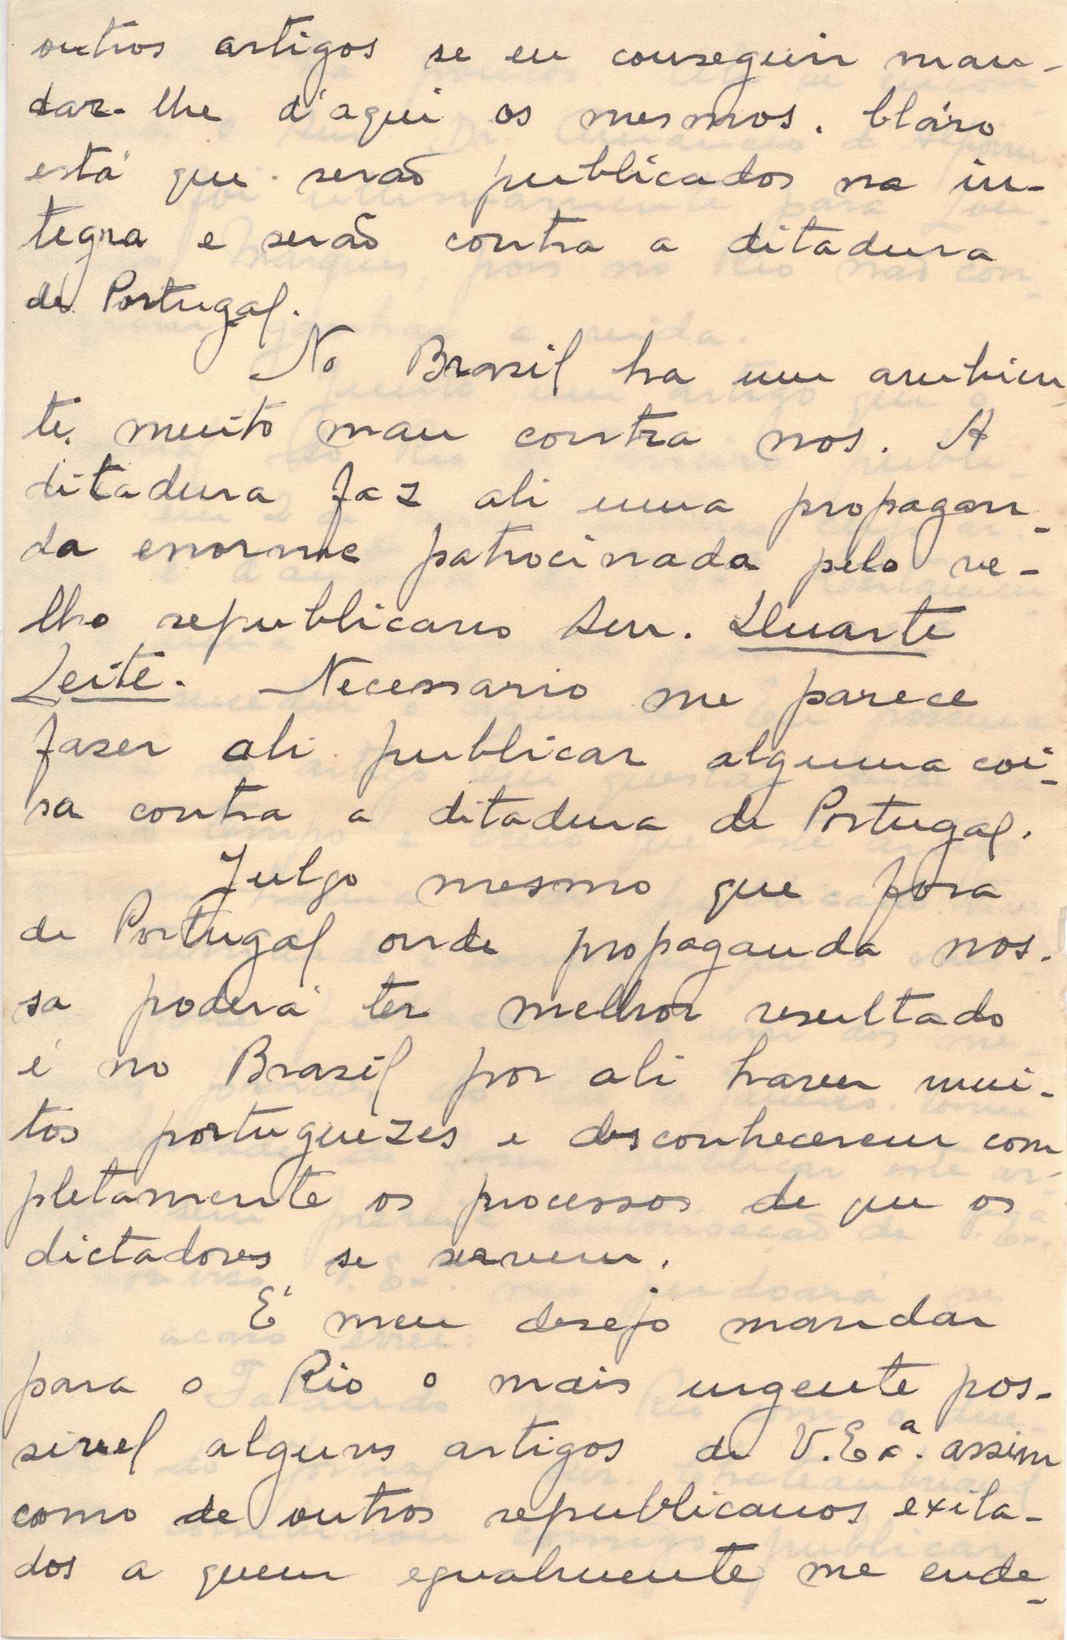 outros artigos se eu conseguir man-
dar-lhe d'aqui os mesmos. Claro
está que serão publicados na in-
tegra e serão contra a ditadura
de Portugal.
No Brasil ha um ambien
te muito mau contra nos. A
ditadura faz ali uma propagan-
da enorme patrocinada pelo ve-
lho republicano Snr. Duarte
Leite. Necessario me parece
fazer ali publicar alguma coi-
sa contra a ditadura de Portugal.
Julgo mesmo que fora
de Portugal onde propaganda nos-
sa poderá ter melhor resultado
é no Brazil por ali haver mui-
tos portuguezes e desconhecerem com
pletamente os processos de que os
dictadores se servem.
E' meu desejo mandar
para o Rio o mais urgente pos-
sivel alguns artigos de V. Exª. assim
como de outros republicanos exila-
dos a quem egualmente me ende-